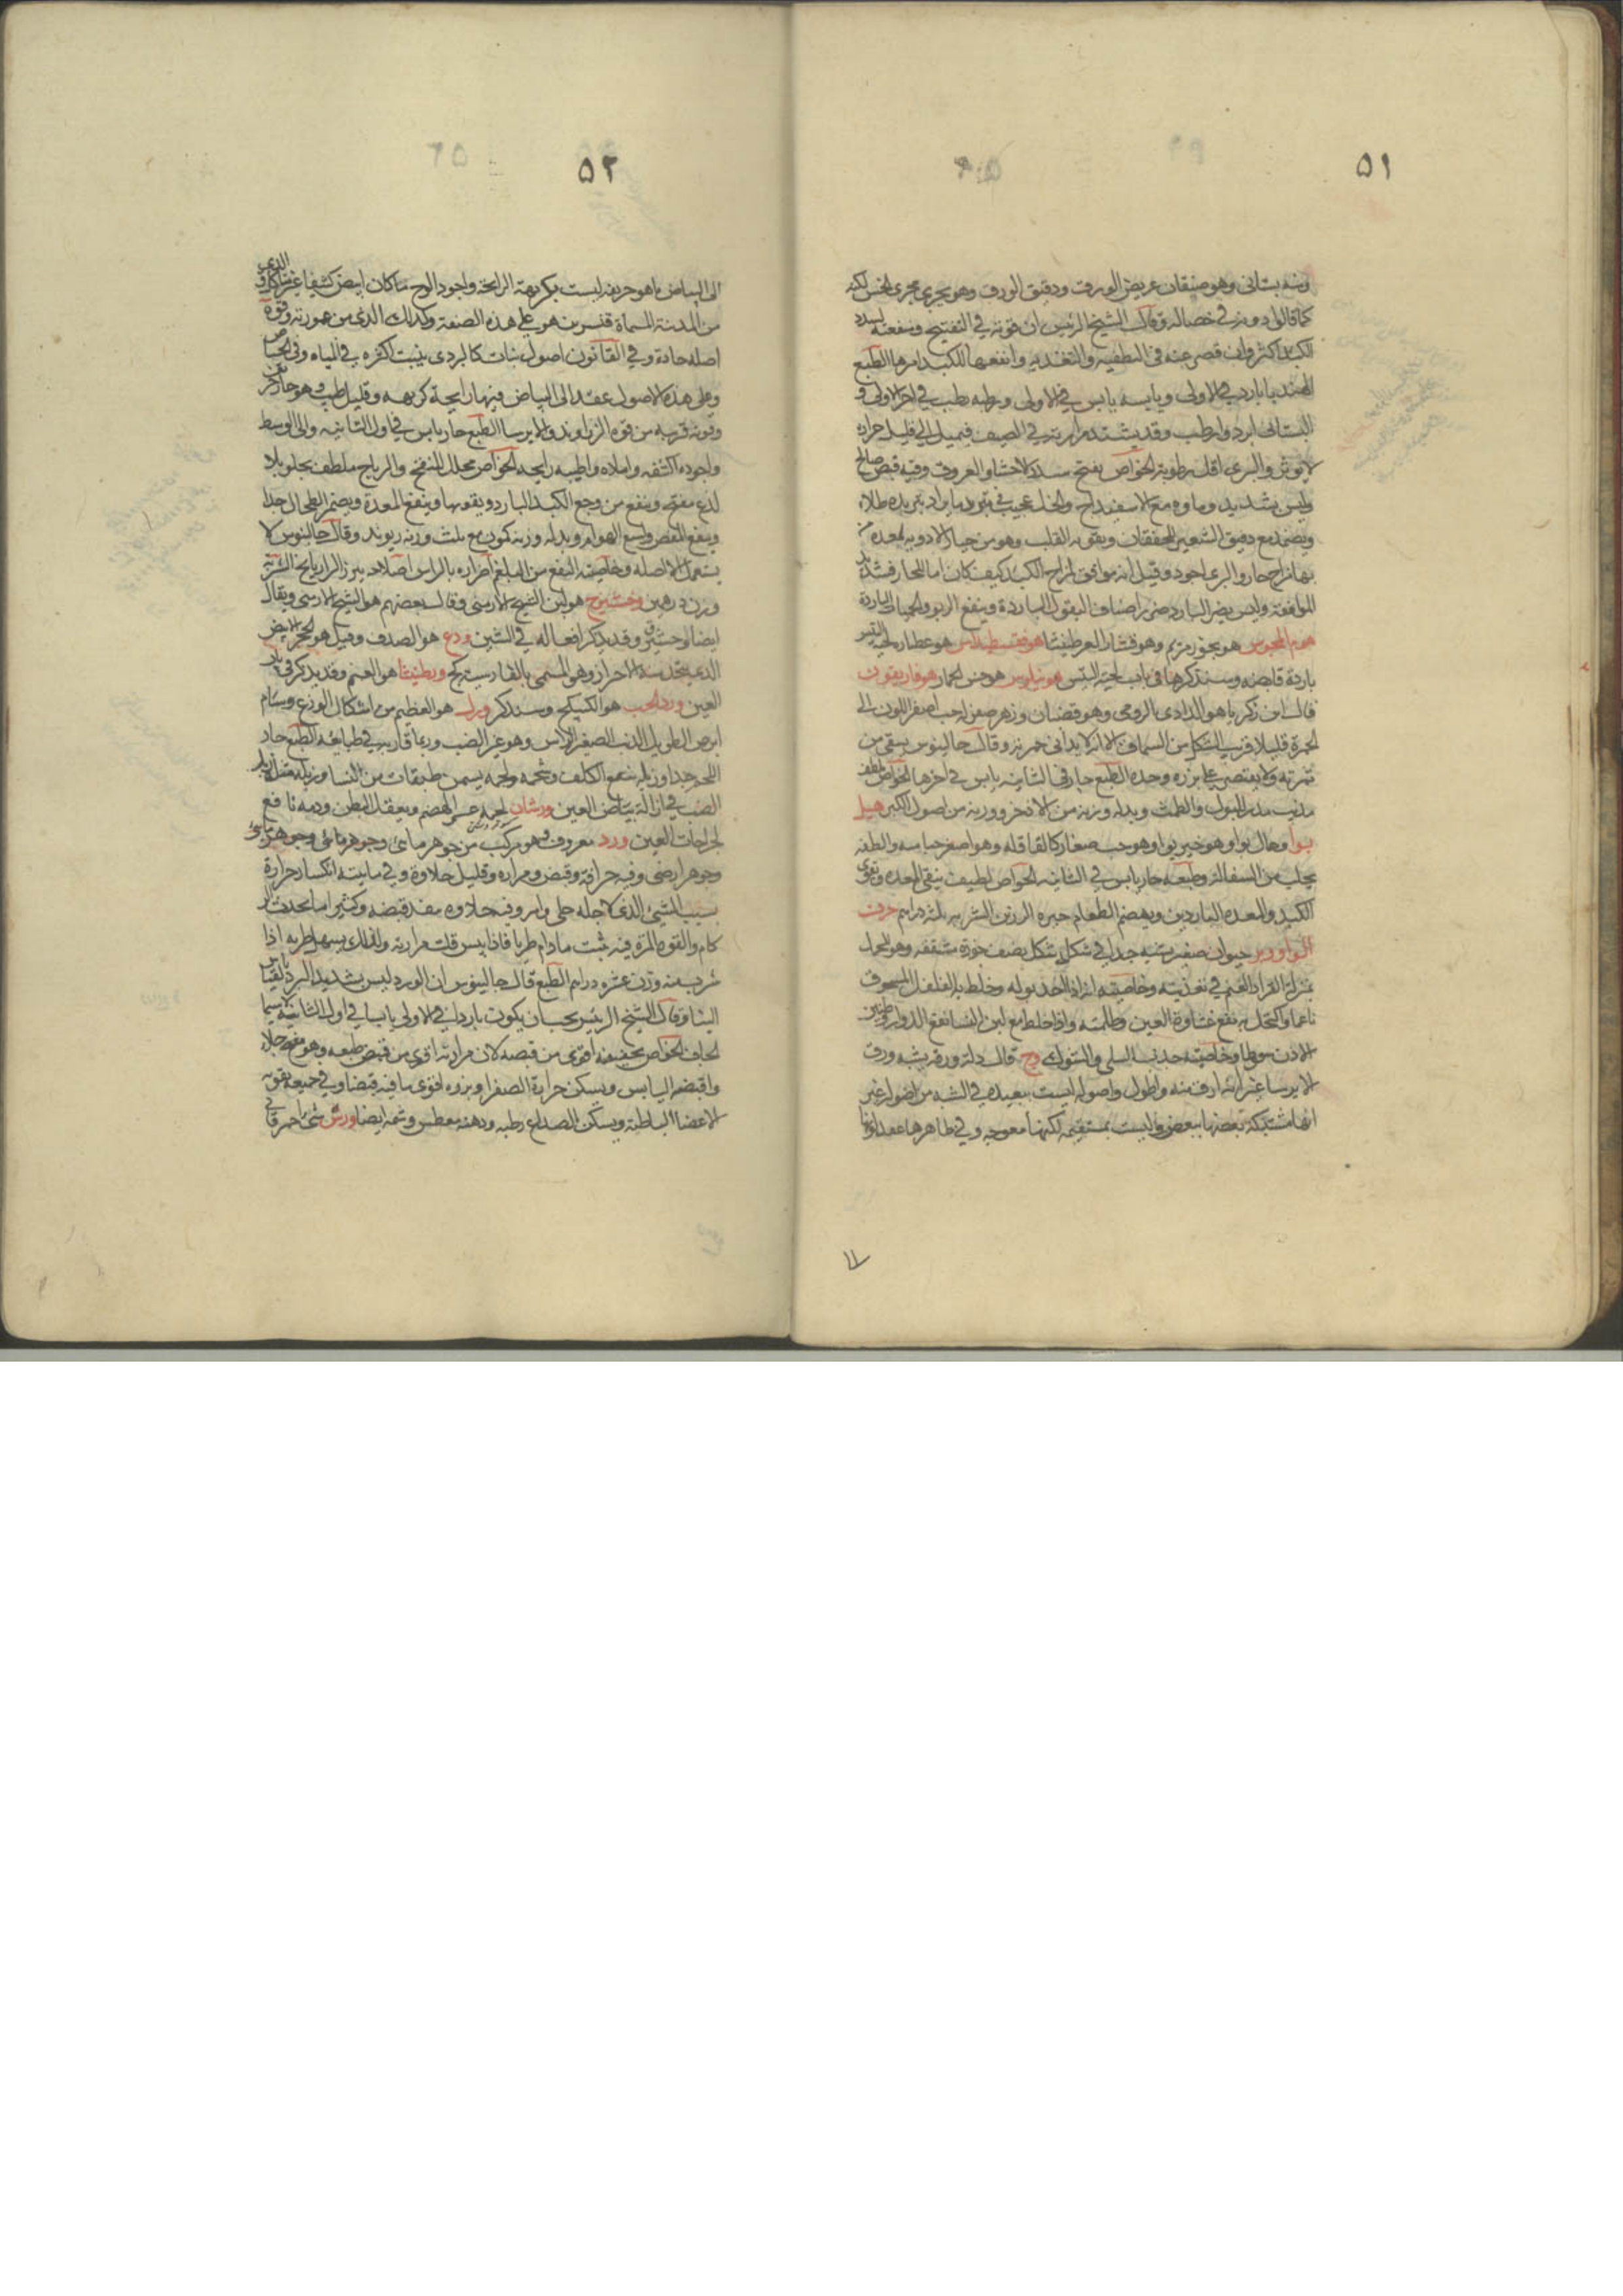 ٥١
ومنه بستاني وهو صنفان عريض الورق ودقيق الورق وهو يجري مجرى الخس لكنه
كما قالوا دونه في خصاله وقال الشيخ الرئيس ان قوته في التفتيح ومنفعته لسدد
الكبد اكثر وان قصر عنه في التطفية والتغذية وانفعها للكبد امرها الطبع
الهندبا بارد في الاولى ويابسه يابس في الاولى ورطبه رطب في اخر الاولى و
البستاني ابرد وارطب وقد يشتد مرارته في الصيف فيميل الى قليل حرارة
لا يؤثر والبري اقل رطوبة الخواص يفتح سدد الاحشا والعروق وفيه قبض صالح
وليس بشديد وماؤه مع الاسفيداج والخل عجيب في تبريد ما يراد تبريده طلاء
ويضمد مع دقيق الشعير للخفقان ويقوى القلب وهو من خيار الادوية لمعدة
بها مزاج حار والبري اجود وقيل انه موافق لمزاج الكبد كيف كان اما للحار فشديد
الموافقة وليس يضر البارد ضرر اصناف البقول الباردة وينفع الربو والحميات الباردة
هوم المجوس هو بخور مريم وهو قشار العرطنيثا هوفقسطيداس هو عصارة لحية التيس
باردة قابضة وسنذكرها في باب لحية التيس هونيلوس هو خس الحمار هوفاريقون
قال ابن زكريا هو الدادي الرومي وهو قضبان وزهر صفر له حب اصفر اللون الى
الحمرة قليلا قريب الشكل من السماق الا انه لا يداني حمرته وقال جالينوس يسقى من
ثمرته ولا يقتصر على بزره وحده الطبع حار في الثانية يابس في اخرها الخواص ملطف
مذيب مدر للبول والطمث وبدله وزنه من الاذخر ووزنه من اصول الكبر هيل
بوا وهال بوا وهو خير بوا وهو حب صغار كالقاقلة وهو اصغر حبا منه والطف
يجلب من السفالة وطبعه حار يابس في الثانية الخواص لطيف ينقي المعدة ويقوى
الكبد والمعدة الباردين ويهضم الطعام الشربة ثلثة دراهم حرف
الواو وبر حيوان صغير شبيه جدا في شكل شكل نصف جوزة مشققة وهو لحمل
بمنزلة القراد للغنم في تغذيته وخاصيته انه اذا اخذ بوله وخلط بالفلفل المسحوق
ناعما واكتحل به نفع غشاوة العين وظلمته واذا خلط مع لبن النسا نفع الدوار وطنين
الاذن سعوطا وخاصيته جذب السلى والشوك وج قال دلة ورقه يشبه ورق
الايرسا غير انه ارق منه واطول واصوله ليست ببعيدة في الشبه من اصوله غير
انها مشتبكة بعضها ببعض وليست بمستقيمة لكنها معوجة وفي ظاهرها عقد لونها
٥٢
الى البياض ما هو حريفة ليست بكريهة الرائحة واجود الوج ما كان ابيض كثيفا غير متاكل الذي
من المدينة المسماة قنسرين هو على هذه الصفة وكذلك الذي من صورته وقوة
اصله حادة وفي القانون اصول نبات كالبردي ينبت اكثره في المياه وفي الحياض
وعلى هذه الاصول عقد الى البياض فيها رايحة كريهة وقليل طيب وهو حاد
وقوته قريبة من قوة الزراوند والايرسا الطبع حار يابس في اول الثانية والى الوسط
واجوده اكثفه واملاه واطيبه رايحة الخواص محلل النفخ والرياح ملطف يجلو بلا
لذع مفتح وينفع من وجع الكبد البارد ويقويها وينفع المعدة ويضمر الطحال جدا
وينفع المغص ولسع الهوام وبدله وزنه كمون مع ثلث وزنه ريوند وقال جالينوس لا
يستعمل الا اصله وخاصيته النفع من البلغم اضراره بالراس اصلاحه بزر الرازيانج الشربة
وزن درهمين وخشيزج هو لبن الشيح الارمني وقال بعضهم هو الشيح الارمني ويقال
ايضا وحشيرق وقد يذكر افعاله في الشين ودع هو الصدف وقيل هو الحجر الابيض
الذي يتخذ منه الاحراز وهو المسمى بالفارسية كج وربطينثا هو العنم وقد يذكر في باب
العين ورد الحب هو الكبيكج وسنذكر ورل هو العظيم من اشكال الوزغ وسام
ابرص الطويل الذنب الصغير الراس وهو غير الضب وربما قاربه في طبائعه الطبع حار
اللحم جدا وزبله ينفع الكلف وشحمه ولحمه يسمن طبقات من النسا وزبله مثل زبل
الضب في ازالة بياض العين ورشان لحمه عسر الهضم ويعقل البطن ودمه نافع
لجراحات العين ورد معروف وهو مركب من جوهر مائي وجوهر
وجوهر ارضي وفيه حرافة وقبض ومرارة وقليل حلاوة وفي مائيته انكسار حرارة
بسبب الشئ الذي لاجله حلى وامر وفيه حلاوة قبضه وكثيرا ما يحدث الز
كام والقوة المرة فيه تثبت ما دام طريا فاذا يبس قلت مرارته ولذلك يسهل طريه اذا
شرب منه وزن عشرة دراهم الطبع قال جالينوس ان الورد ليس بشديد البرد بالقياس
الينا وقال الشيخ الرئيس يجب ان يكون باردا في الاولى يابسا في اول الثانية لا سيما
الجاف الخواص تجفيفه اقوى من قبضه لان مرارته اقوى من قبض طبعه وهو مفتح جلاء
واقبضه اليابس ويسكن حرارة الصفرا وبزره اقوى ما فيه قبضا وفي جميعه تقوية
للاعضا الباطنة ويسكن الصداع رطبه ودهنه معطس وشمه ايضا ورس شئ احمر قاني